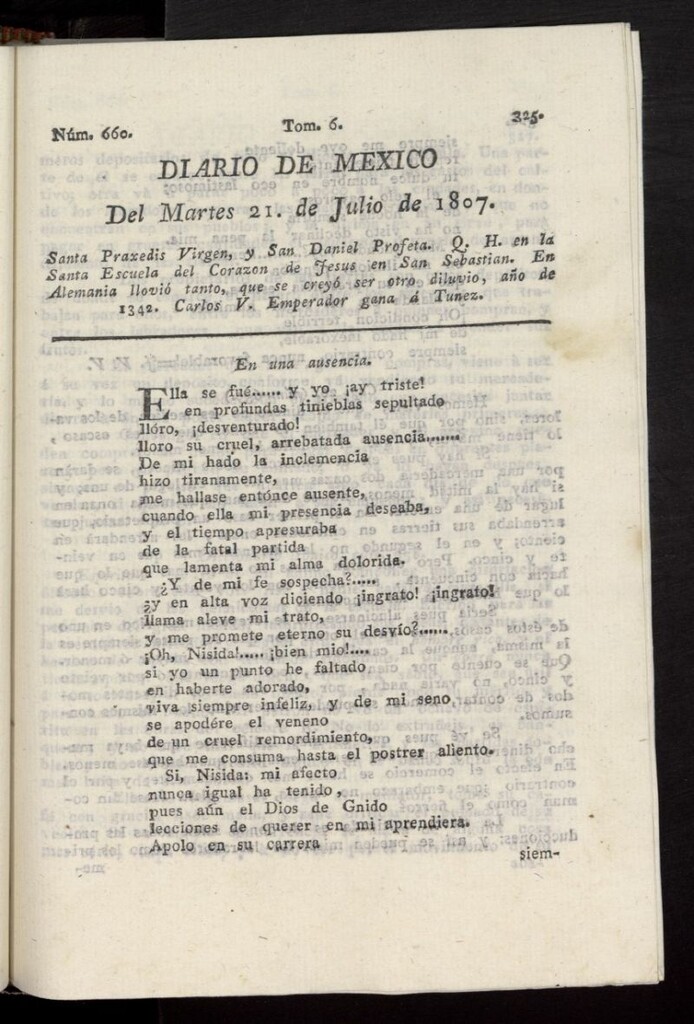 Núm. 660. Tom. 6. 325.
DIARIO DE MEXICO
Del Martes 21. de Julio de 1807.
Santa Praxedis Virgen, y San Daniel Profeta. Q. H. en la
Santa Escuela del Corazon de Jesus en San Sebastian. En
Alemania llovió tanto, que se creyó ser otro diluvio, año de
1342. Carlos V. Emperador gana á Tunez.
En una ausencia.
Ella se fué...... y yo ¡ay triste!
en profundas tinieblas sepultado
llóro, ¡desventurado!
lloro su cruel, arrebatada ausencia.......
De mi hado la inclemencia
hizo tiranamente,
me hallase entónce ausente,
cuando ella mi presencia deseaba,
y el tiempo apresuraba
de la fatal partida
que lamenta mi alma dolorida.
¿Y de mi fe sospecha?.....
¿y en alta voz diciendo ¡ingrato! ¡ingrato!
llama aleve mi trato,
y me promete eterno su desvío?......
¡Oh, Nisida!..... ¡bien mio!....
si yo un punto he faltado
en haberte adorado,
viva siempre infeliz, y de mi seno
se apodére el veneno
de un cruel remordimiento,
que me consuma hasta el postrer aliento.
Si, Nisida: mi afecto
nunca igual ha tenido,
pues aún el Dios de Gnido
lecciones de querer en mi aprendiera.
Apolo en su carrera
siem-